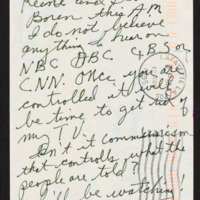 Keene and
Boren this AM
I do not believe
anything I hear on
NBC ABC CBS or
CNN. Once you are
controlled it will
be time to get rid of
my TV.
Isn't it communism
that controls what the
people are told?
I'll be watching!